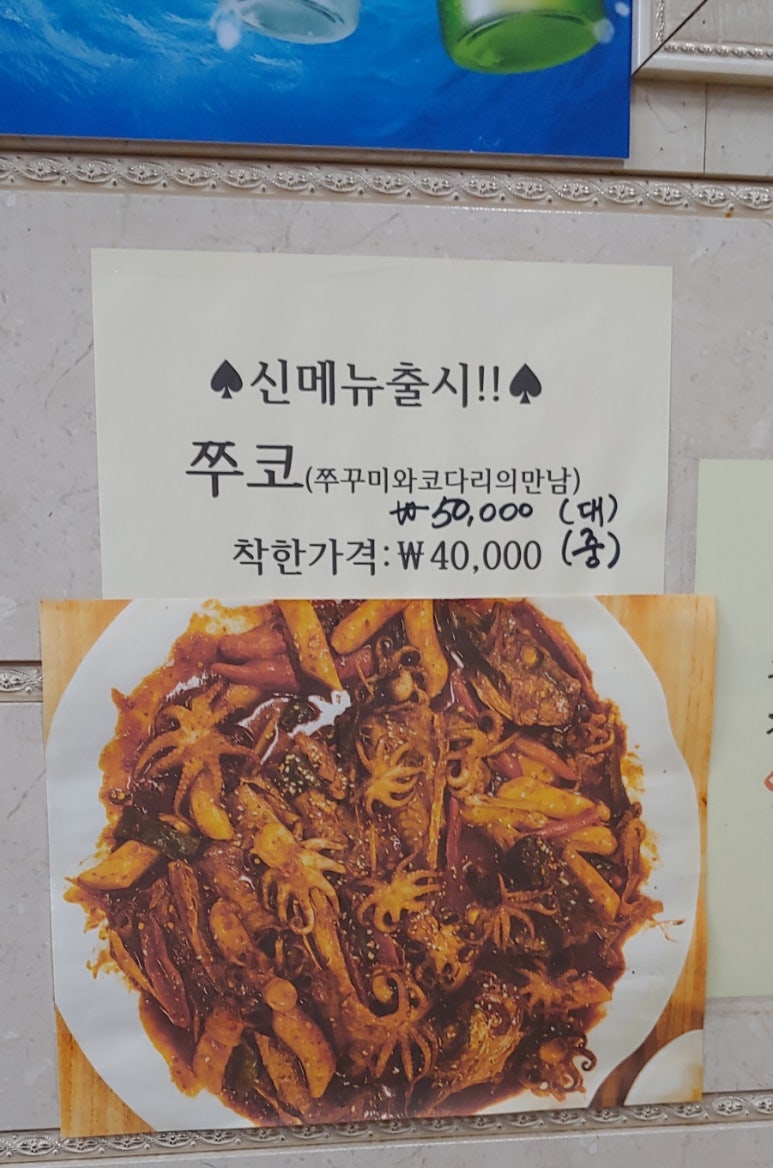 ♠신메뉴출시!!♠
쭈코(쭈꾸미와코다리의만남)
₩50,000 (대)
착한가격:₩40,000 (중)